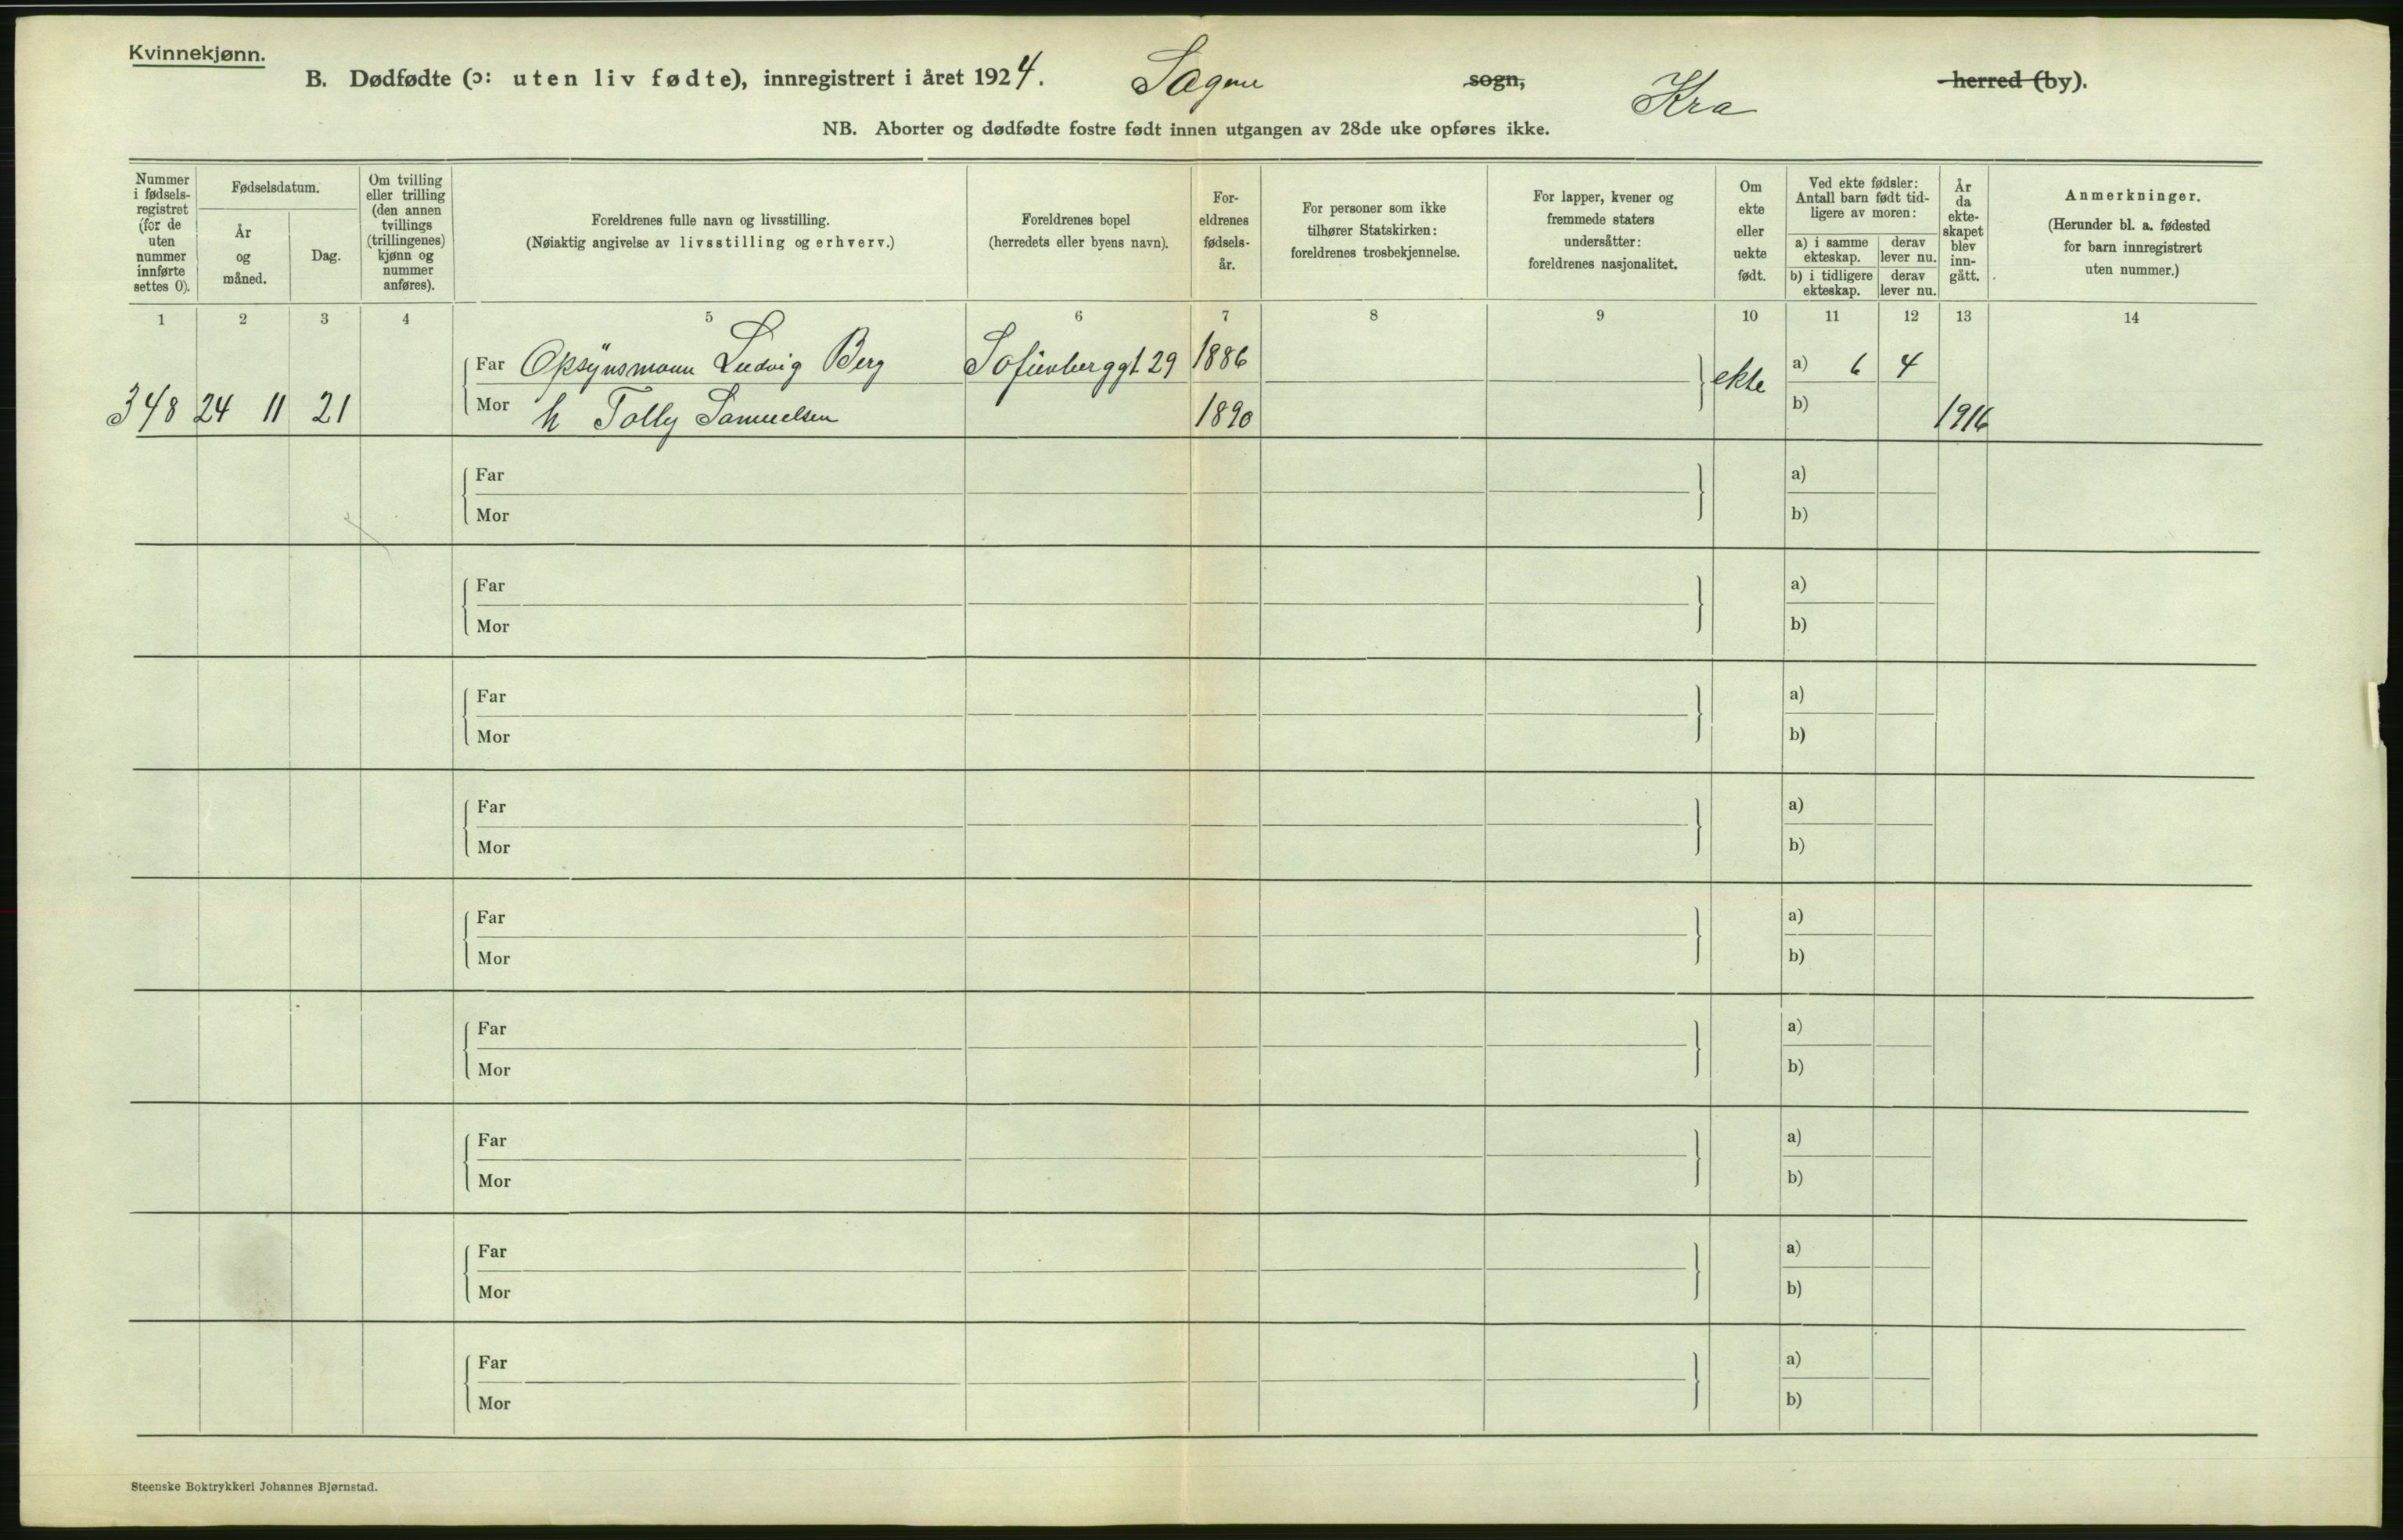 Kvinnekjønn.
B. Dødfødte (ɔ: uten liv fødte), innregistrert i året 1924. Sagene sogn, Kra herred (by).
NB. Aborter og dødfødte fostre født innen utgangen av 28de uke opføres ikke.
Nummer
i fødsels-
registret
(for de
uten
nummer
innførte
settes 0).
Fødselsdatum.
År
og
måned.
Dag.
Om tvilling
eller trilling
(den annen
tvillings
(trillingenes)
kjønn og
nummer
anføres).
Foreldrenes fulle navn og livsstilling.
(Nøiaktig angivelse av livsstilling og erhverv.)
Foreldrenes bopel
(herredets eller byens navn).
For-
eldrenes
fødsels-
år.
For personer som ikke
tilhører Statskirken:
foreldrenes trosbekjennelse.
For lapper, kvener og
fremmede staters
undersåtter:
foreldrenes nasjonalitet.
Om
ekte
eller
uekte
født.
Ved ekte fødsler:
Antall barn født tid-
ligere av moren:
a) i samme
ekteskap.
derav
lever nu.
b) i tidligere
ekteskap.
derav
lever nu.
År
da
ekte-
skapet
blev
inn-
gått.
Anmerkninger.
(Herunder bl. a. fødested
for barn innregistrert
uten nummer.)
1 2 3 4 5 6 7 8 9 10 11 12 13 14
Far Opsynsmann Ludvig Berg Sofienberggt 29 1886 ekte a) 6 4
348 24 11 21 Mor h Tolly Samuelsen 1890 b) 1916
Far a)
Mor b)
Far a)
Mor b)
Far a)
Mor b)
Far a)
Mor b)
Far a)
Mor b)
Far a)
Mor b)
Far a)
Mor b)
Far a)
Mor b)
Far a)
Mor b)
Steenske Boktrykkeri Johannes Bjørnstad.